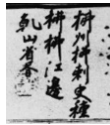 柳州柳刺史種
柳柳江邊
乾山